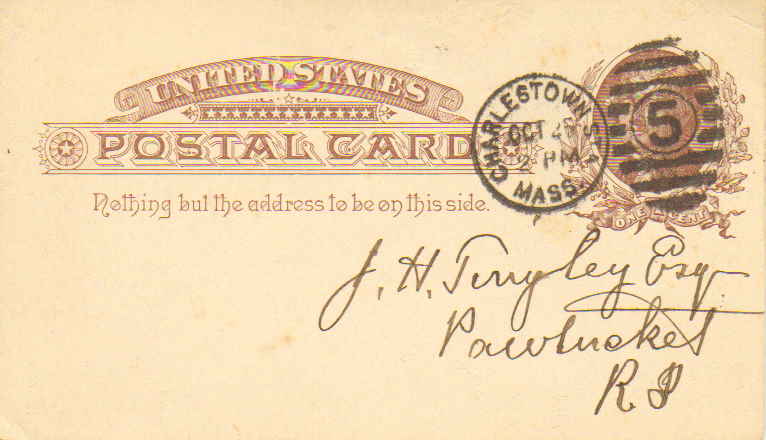 UNITED STATES
POSTAL CARD
Nothing but the address to be on this side.
CHARLESTOWN STA.
OCT
2 PM
MASS.
5
ONE CENT
J. H. Tingley Esq
Pawtucket
R I